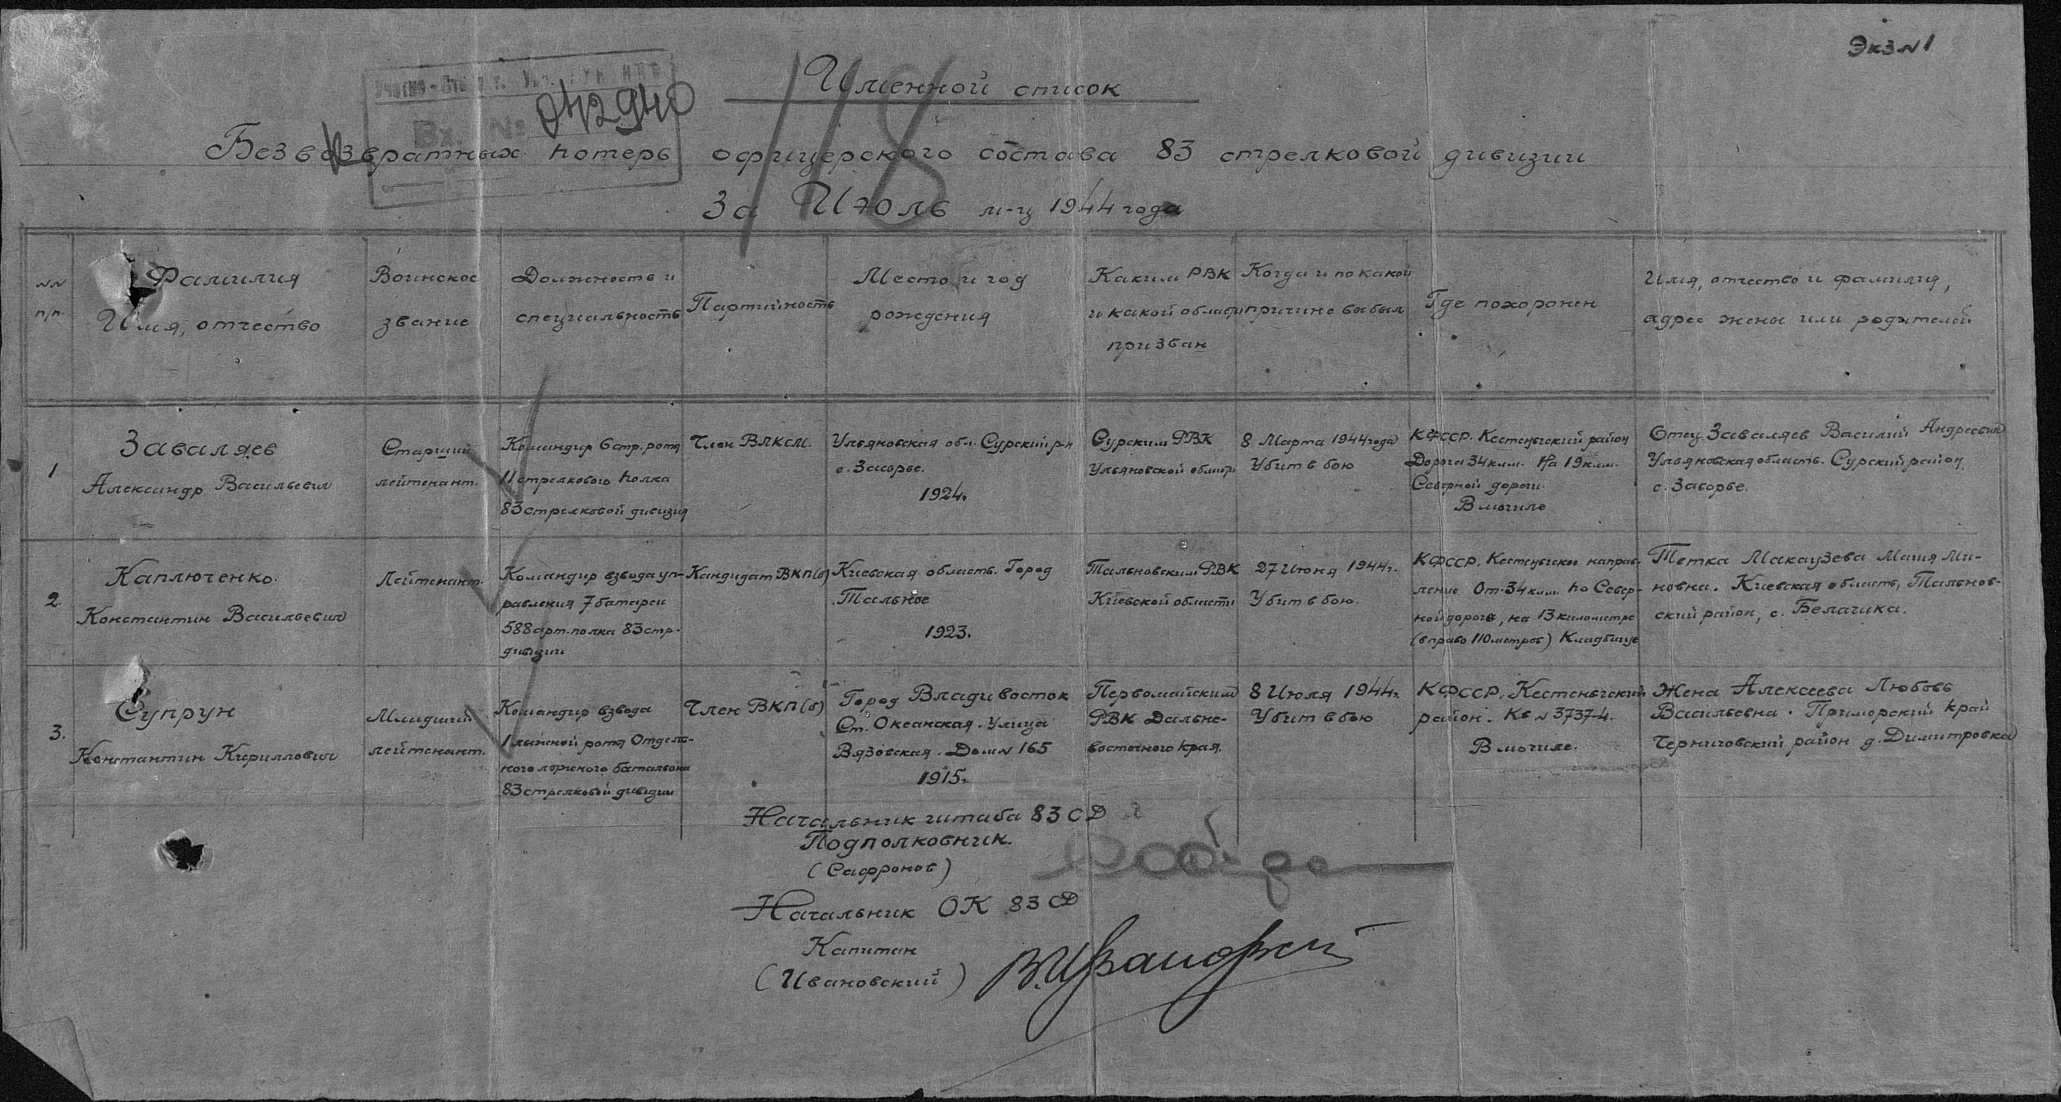 Экз №1
Вх. № 042940
118
Именной список
Безвозвратных потерь офицерского состава 83 стрелковой дивизии
За Июль м-ц 1944 года
№№ п/п.
Фамилия
Имя, отчество
Воинское
звание
Должность и
специальность
Партийность
Место и год
рождения
Каким РВК
и какой области
призван
Когда и по какой
причине выбыл
Где похоронен
Имя, отчество и фамилия,
адрес жены или родителей
1
Заваляев
Александр Васильевич
Старший
лейтенант.
Командир 6 стр. роты
11 стрелкового полка
83 стрелковой дивизии
Член ВЛКСМ.
Ульяновская обл. Сурский р-н
с. Засорье.
1924.
Сурским РВК
Ульяновской области
8 Марта 1944 года
Убит в бою
КФССР. Кестеньгский район
Дорога 34 клм. На 19 клм.
Северной дороги.
В могиле
Отец Заваляев Василий Андреевич
Ульяновская область. Сурский район,
с. Засорье.
2.
Каплюченко.
Константин Васильевич
Лейтенант.
Командир взвода уп-
равления 7 батареи
588 арт. полка 83 стр.
дивизии
Кандидат ВКП(б)
Киевская область. Город
Тальное
1923.
Тальновским РВК
Киевской области
27 Июня 1944 г.
Убит в бою.
КФССР. Кестеньгское направ-
ление От 34 клм. по Север-
ной дороге, на 13 километре
(вправо 110 метров) Кладбище
Тетка Макаузева Мания Ми-
новна. Киевская область, Тальнов-
ский район, с. Белашка.
3.
Супрун
Константин Кириллович
Младший
лейтенант.
Командир взвода
1 лыжной роты Отдель-
ного лыжного батальона
83 стрелковой дивизии
Член ВКП(б)
Город Владивосток
Ст. Океанская. Улица
Вязовская. Дом № 165
1915.
Первомайским
РВК Дальне-
восточного края.
8 Июля 1944 г.
Убит в бою
КФССР. Кестеньгский
район. Кв № 3737-4.
В могиле.
Жена Алексеева Любовь
Васильевна. Приморский край
Черниговский район д. Димитровка
Начальник штаба 83 СД
Подполковник.
(Сафронов)
Начальник ОК 83 СД
Капитан
(Ивановский)